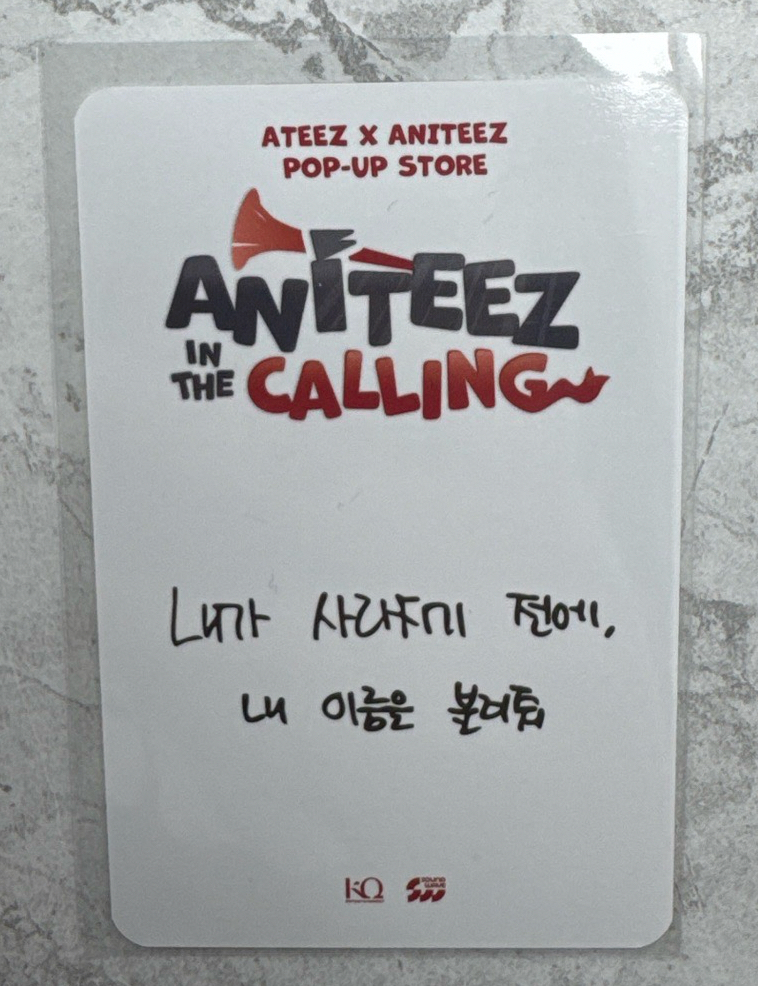 ATEEZ X ANITEEZ
POP-UP STORE
ANITEEZ
IN THE CALLING
내가 사라지기 전에,
내 이름은 불러줘
KQ
SOUND WAVE